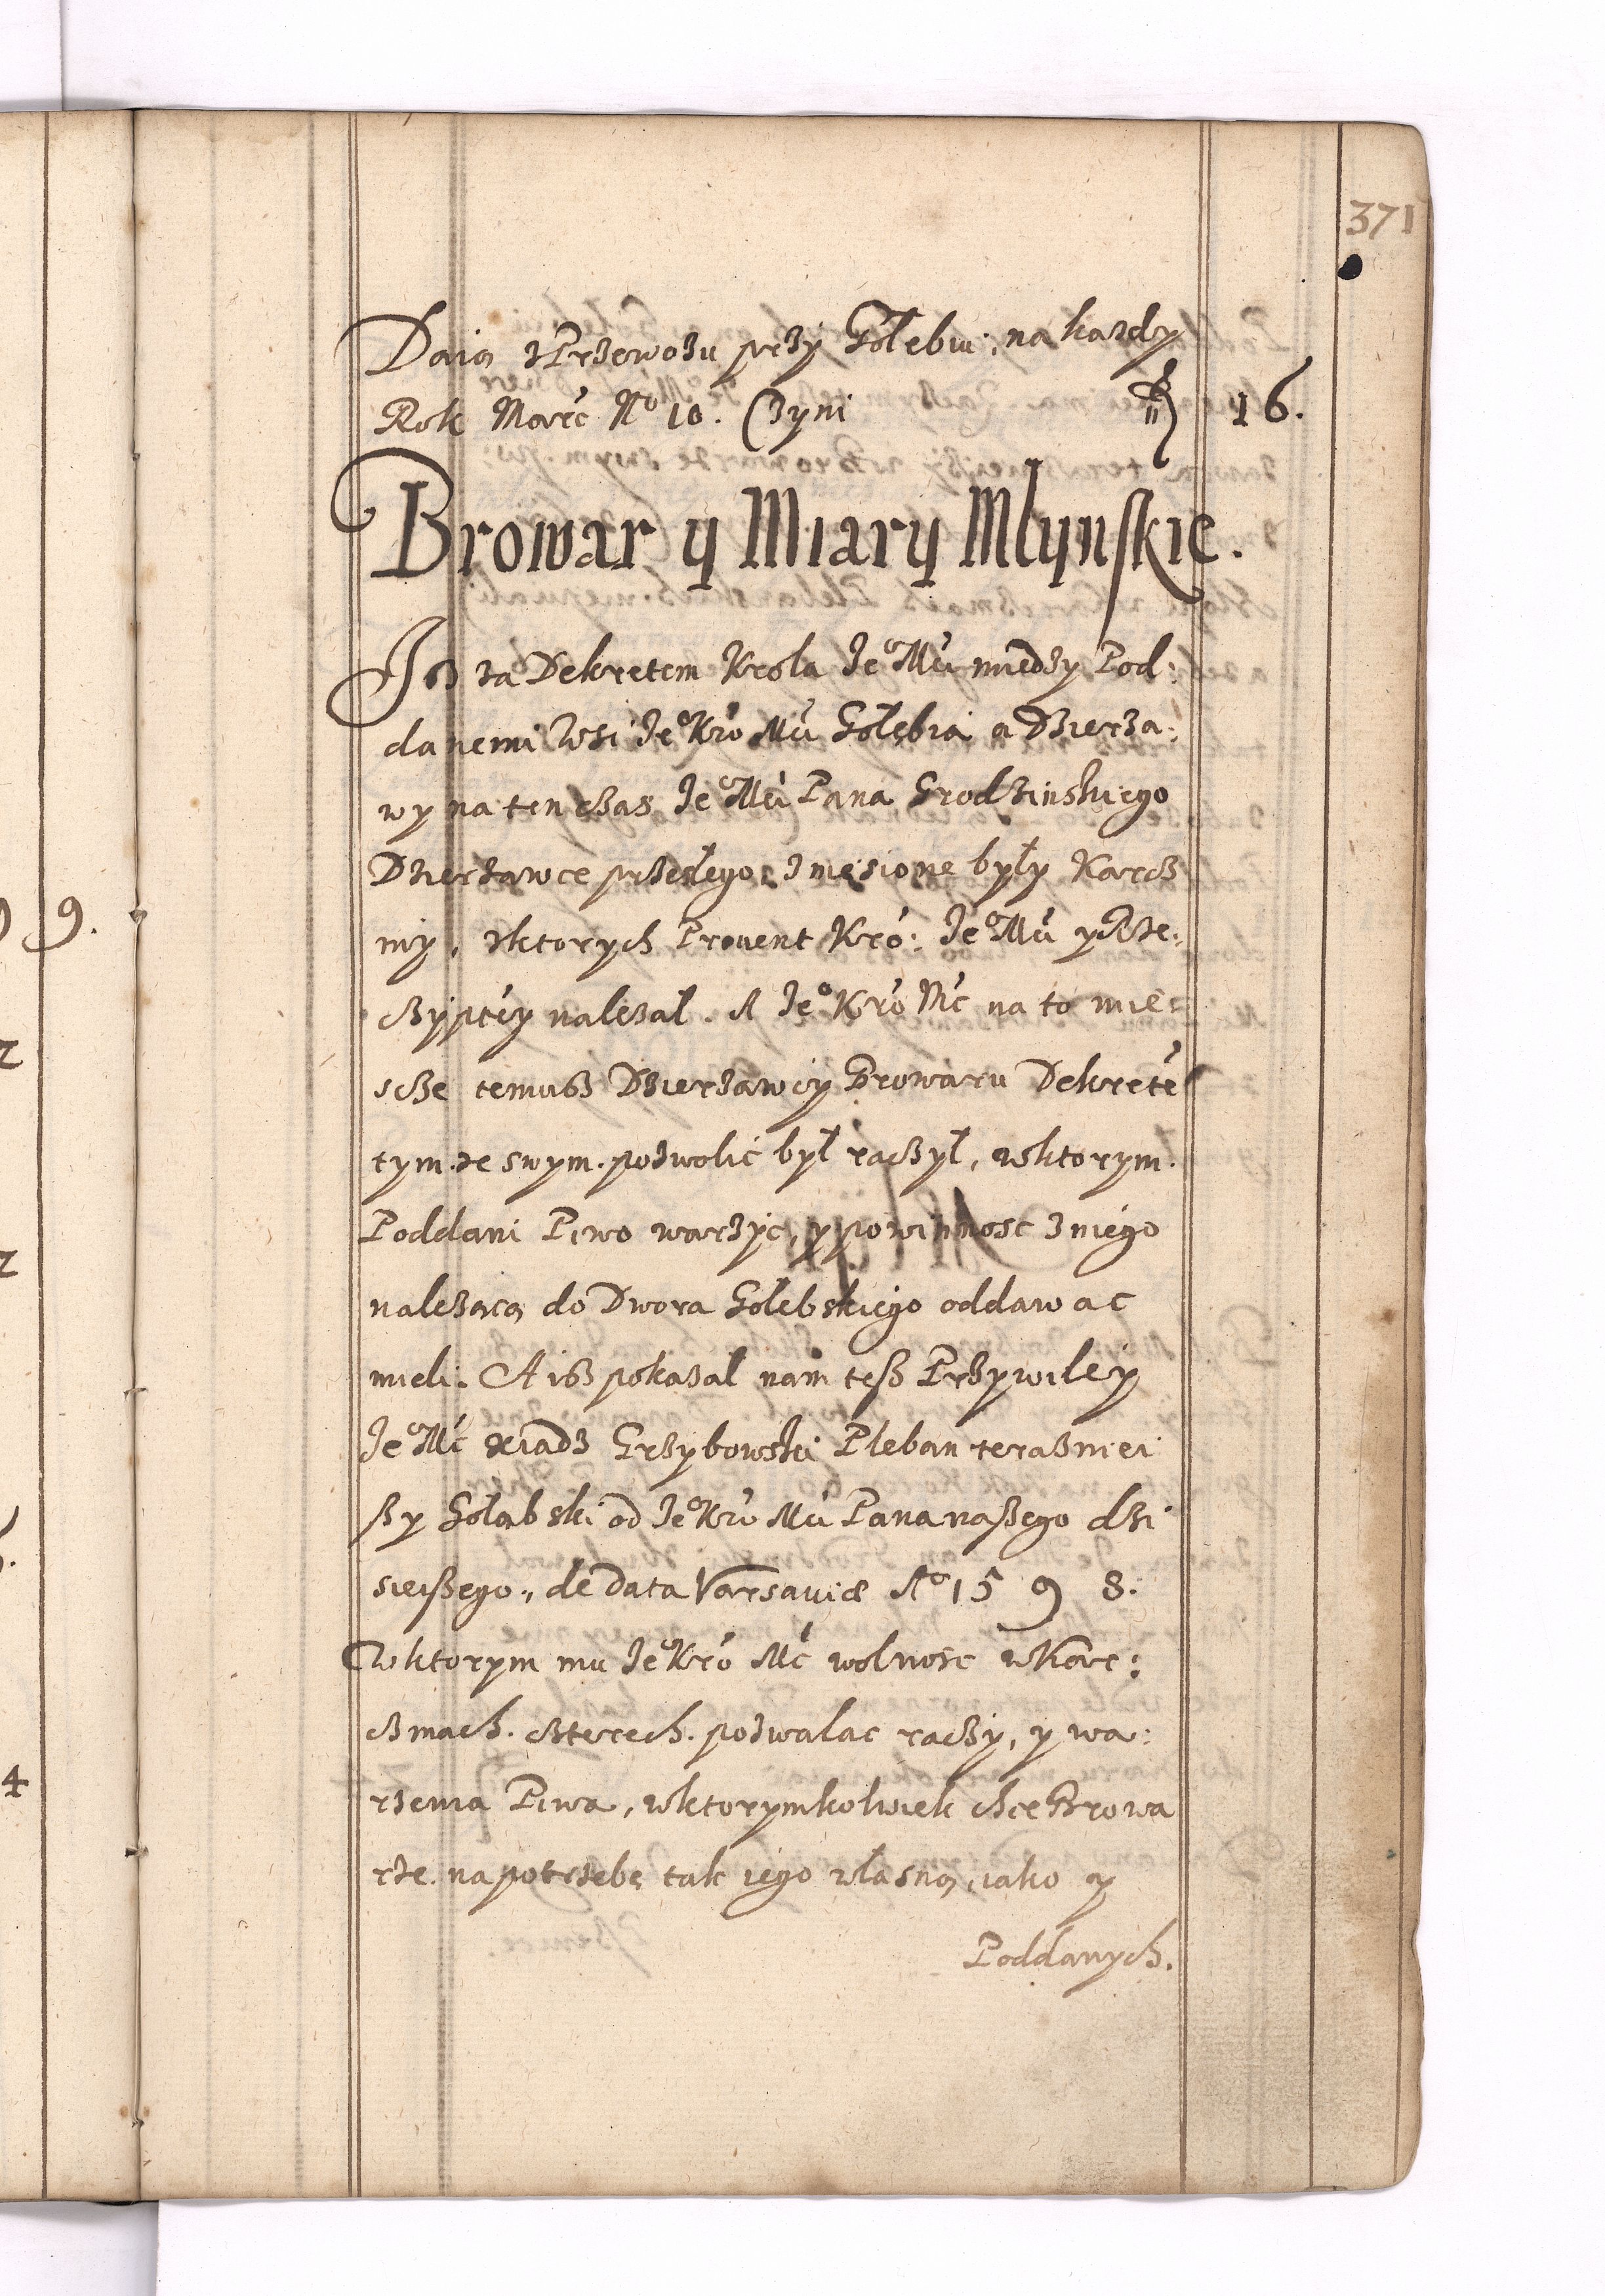 371
Daią z Przewozu przy Gołębiu, na kazdy
Rok Marc No 10. Czyni fl 16.
Browar y Miary Mlynskie.
Isz za Dekretem Krola Jeo Mci między Pod:
danemi Wsi Jeo Kro Mci Gołębia a Dzierza:
wy na ten czas Jeo Mci Pana Grodzinskiego
Dzierzawce przeszłego, zniesione były Karcz
my, z ktorych Prouent Kro: Jeo Mci y Rze:
czyptey nalezal. A Jeo Kro Mc na to mie:
scze temusz Dzierzawcy Browaru Dekrete
tym ze swym pozwolic był raczył, w ktorym
Poddani Piwo warzyc, y powinnosc z niego
nalezącą do Dwora Gołebskiego oddawac
mieli. A isz pokazal nam tesz Przywiley
Jeo Mc xiądz Grzybowski Pleban terazniei
szy Gołąbski od Jeo Kro Mci Pana naszego dzi
sieiszego, de data Varsauiæ Ao 1598.
W ktorym mu Jeo Kro Mc wolnosc w Karc:
czmach czterech pozwalac raczy, y wa:
rzenia Piwa, w ktorymkolwiek chce Browa
rze na potrzebę tak iego własną, iako y
Poddanych.
9.
4